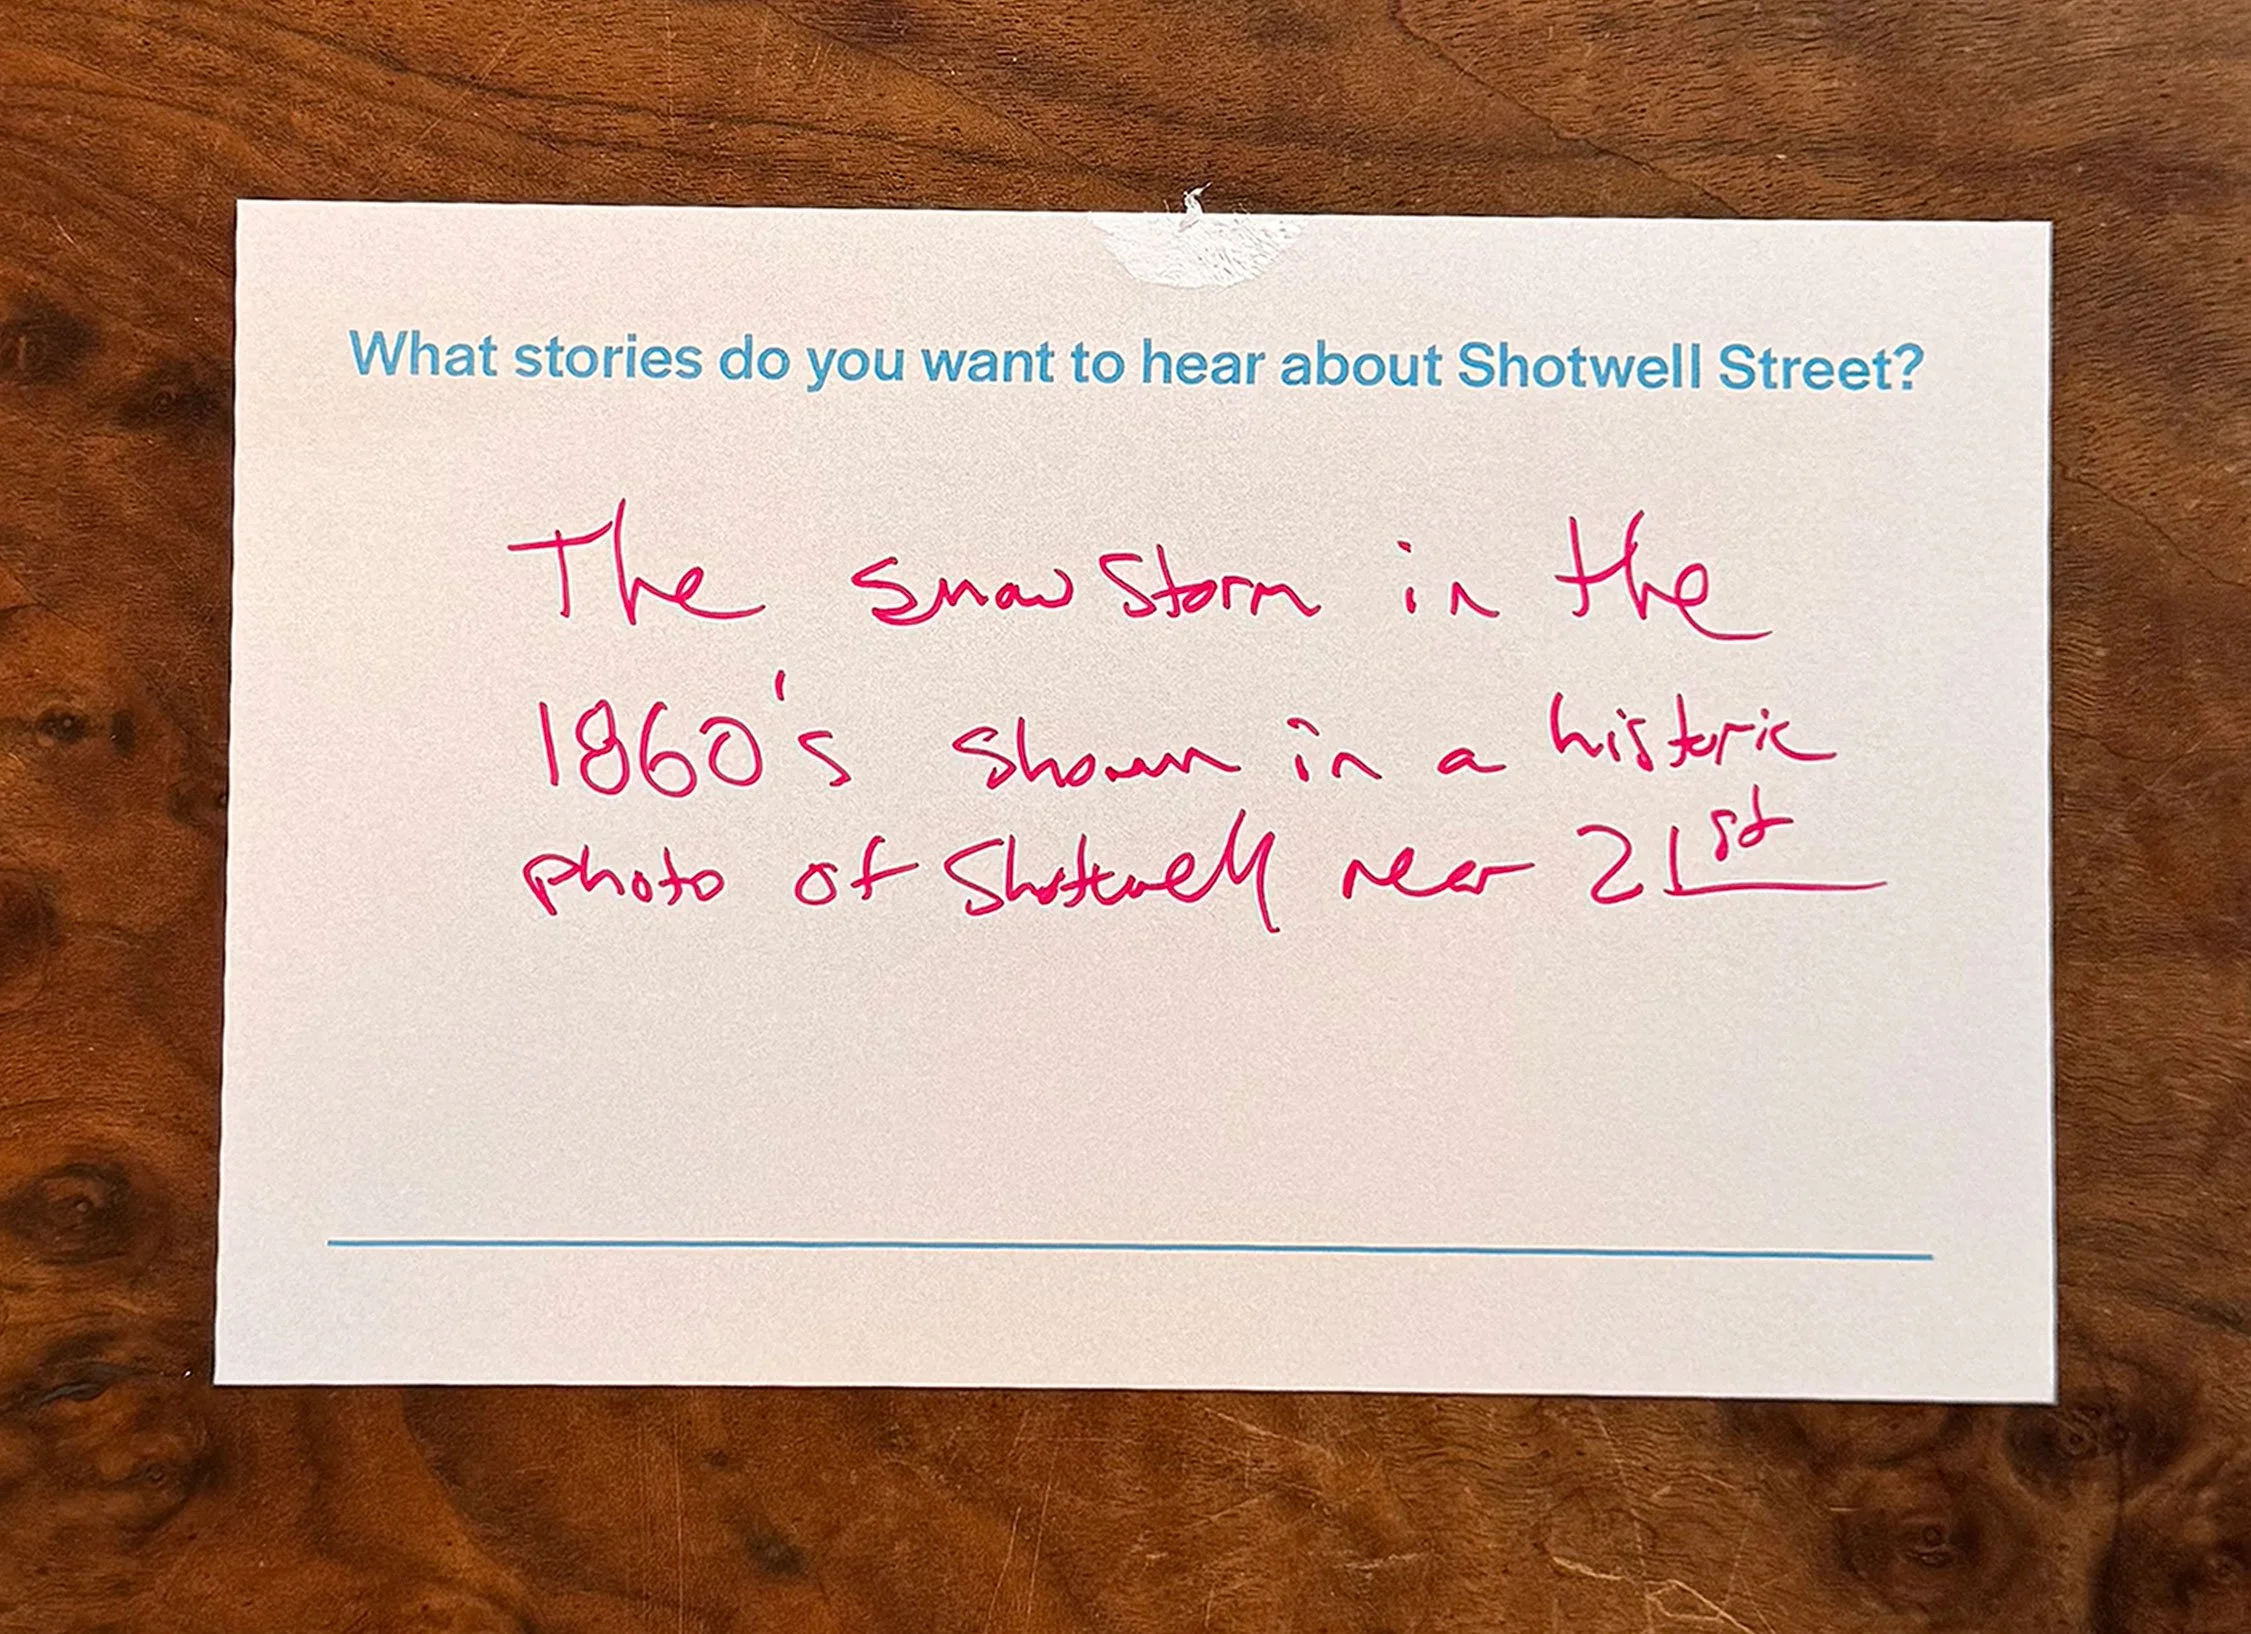 What stories do you want to hear about Shotwell Street?
The snow Storm in the
1860's shown in a historic
photo of Shotwell near 21st